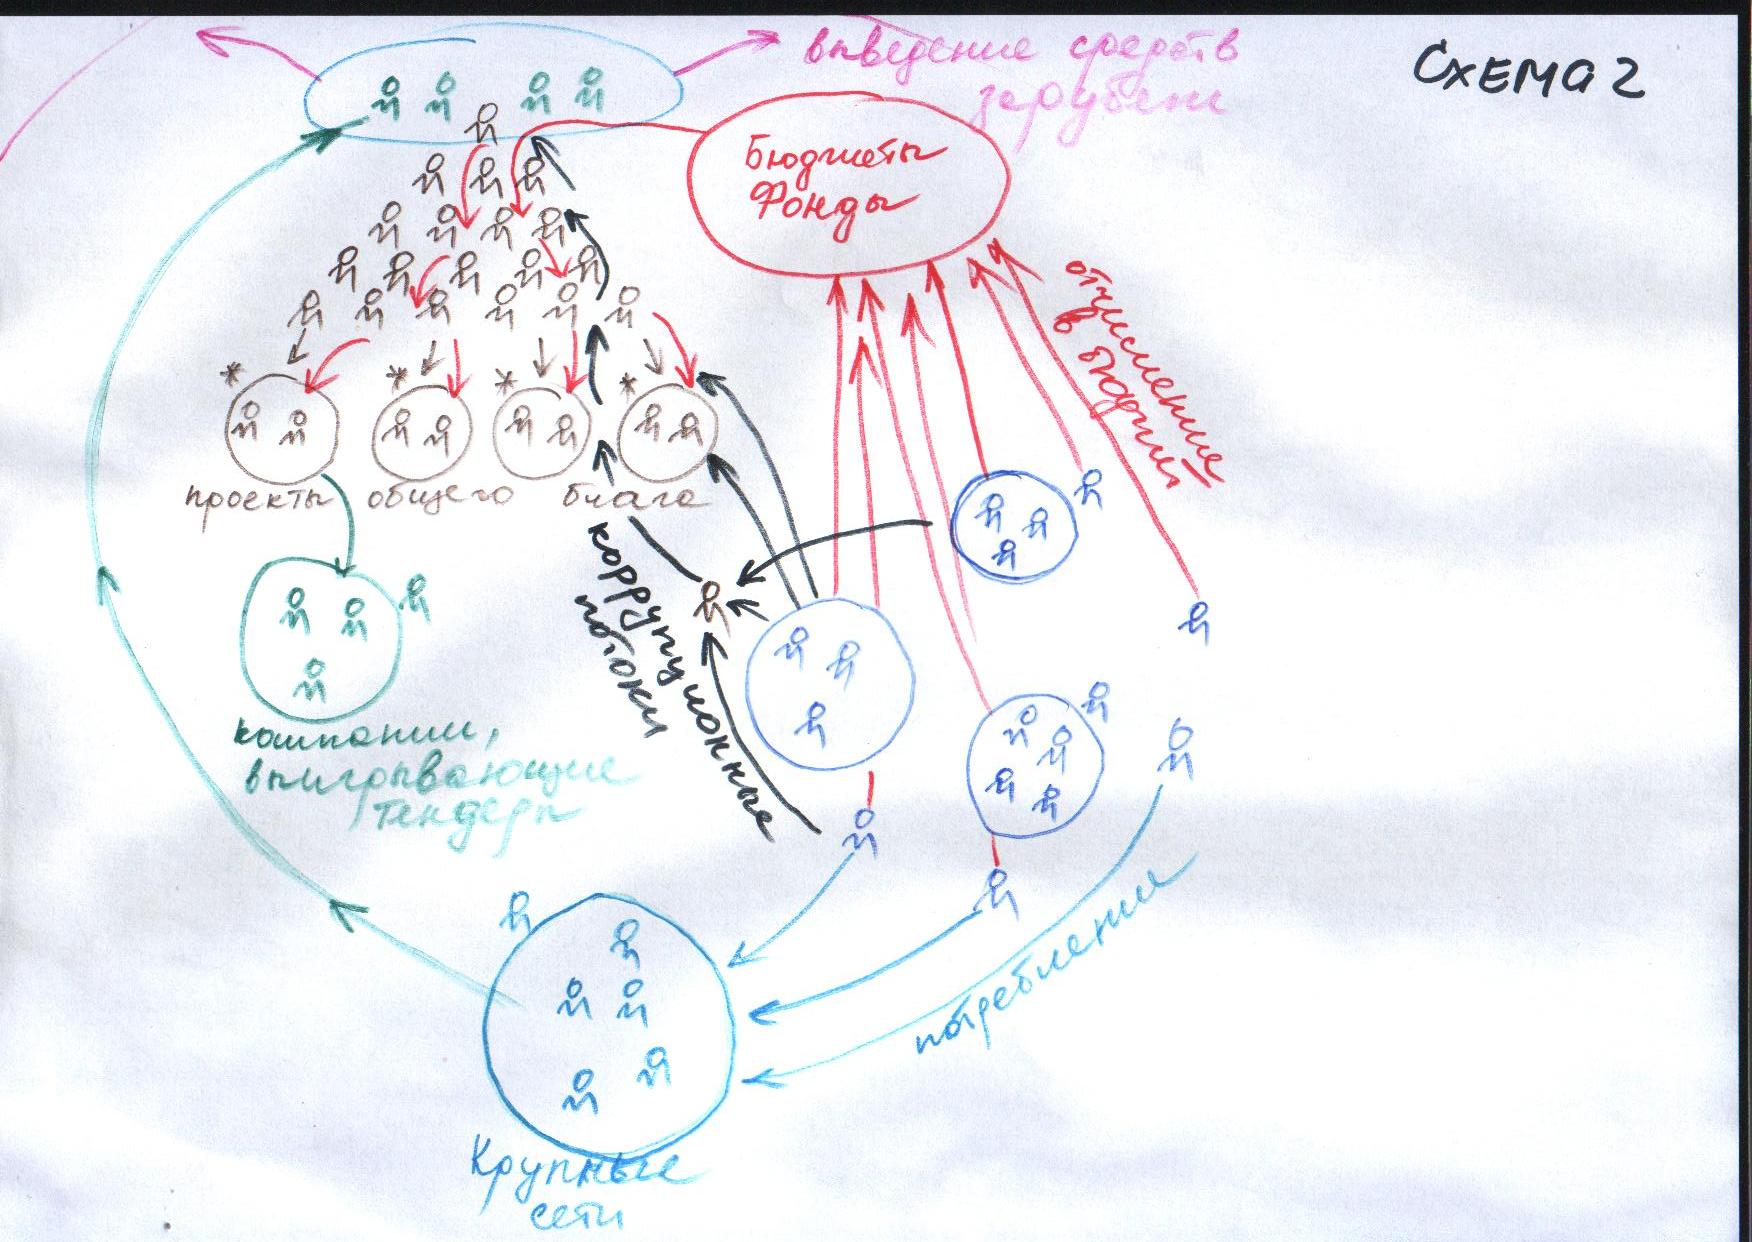 Схема 2
выведение средств
зарубеж
Бюджеты
Фонды
отчисления
в бюджет
проекты общего блага
коррупционные
потоки
компании,
выигрывающие
тендеры
потребление
Крупные
сети